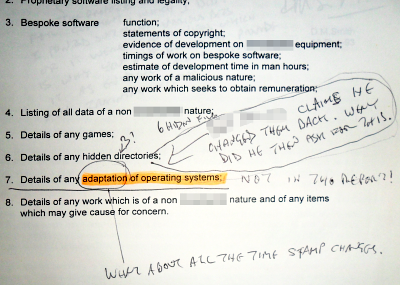 2. Proprietary software listing and legality;
3. Bespoke software function;
statements of copyright;
evidence of development on equipment;
timings of work on bespoke software;
estimate of development time in man hours;
any work of a malicious nature;
any work which seeks to obtain remuneration;
4. Listing of all data of a non nature;
5. Details of any games;
6. Details of any hidden directories;
7. Details of any adaptation of operating systems;
8. Details of any work which is of a non nature and of any items
which may give cause for concern.
3?
6 HIDDEN
CLAIMS HE
CHANGED THEM BACK. WHY
DID HE THEN ASK FOR THIS.
NOT IN REPORT?!
WHAT ABOUT ALL THE TIME STAMP CHANGES.